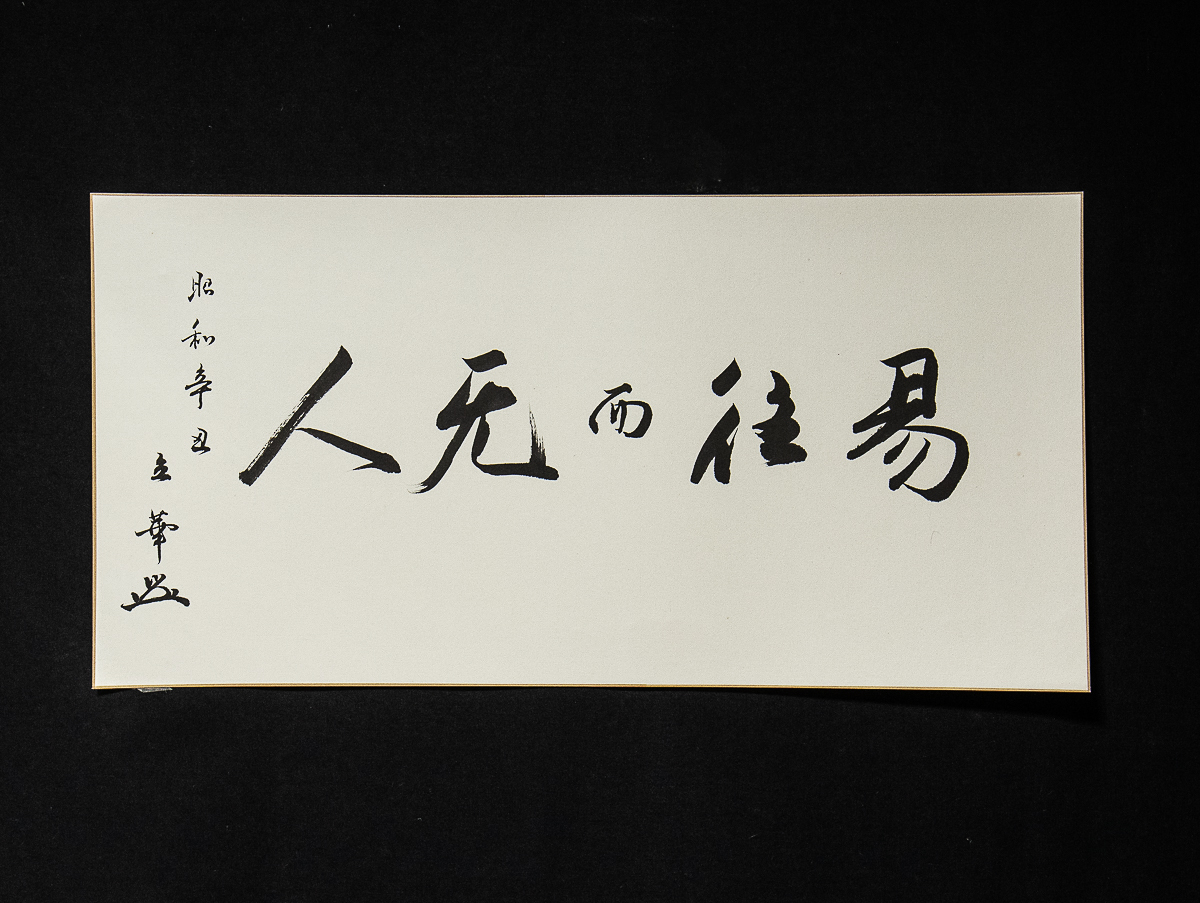 易往而无人
昭和辛丑
立華